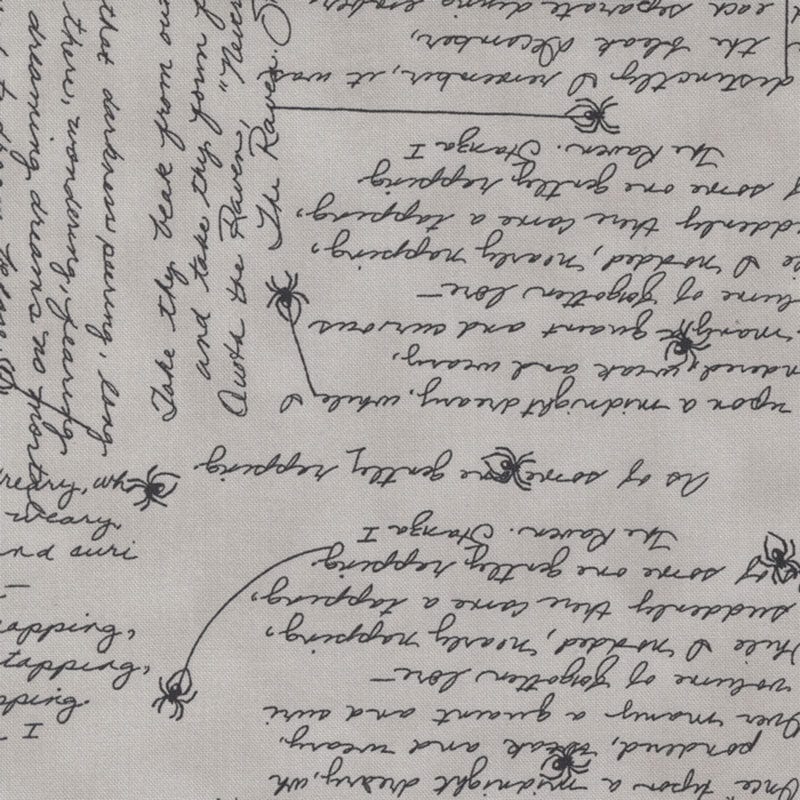 Once upon a midnight dreary, wh
pondered, weak and weary,
Over many a quaint and curi
volume of forgotten lore—
While I nodded, nearly napping,
suddenly there came a tapping,
of some one gently rapping
The Raven. Stanza I
As of some one gently rapping
upon a midnight dreary, while I
ndered, weak and weary,
many quaint and curious
lume of forgotten lore—
le I nodded, nearly napping,
uddenly there came a tapping,
of some one gently rapping
The Raven. Stanza I
distinctly I remember, it was
the bleak December,
each separate dying ember
that darkness peering, long
there, wondering, fearing
dreaming dreams no mortal
Take thy beak from out
and take thy form f
Quoth the Raven, "Never
The Raven. S
reary, wh
weary,
nd curi
—
napping,
tapping,
rapping.
I